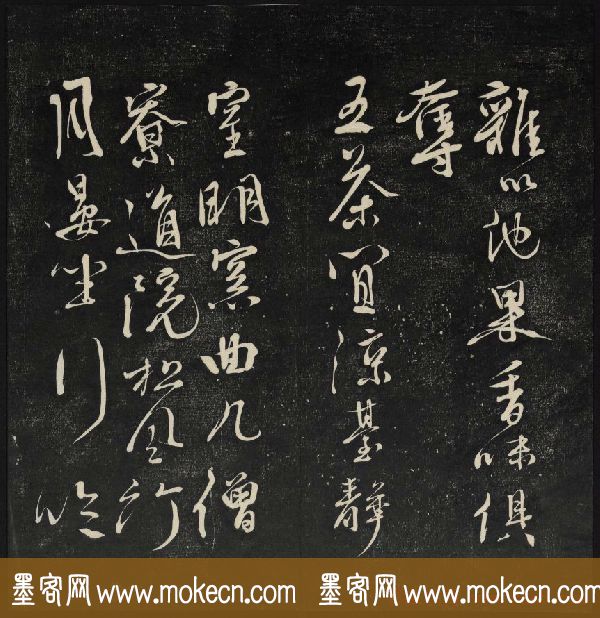 雜以他果香味俱
奪
五茶宜涼臺靜
室明窗曲几僧
寮道院松風竹
月晏坐行吟
墨客网 www.mokecn.com 墨客网 www.mokecn.com